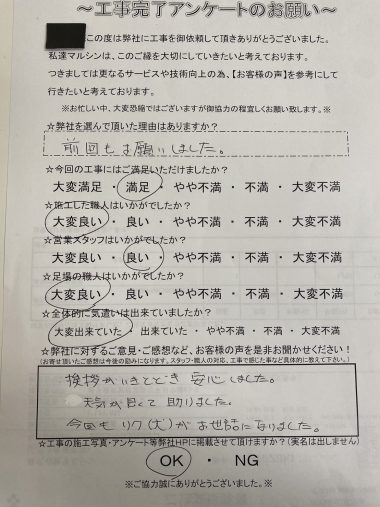 ～工事完了アンケートのお願い～
この度は弊社に工事を御依頼して頂きありがとうございました。
私達マルシンは、このご縁を大切にしていきたいと考えております。
つきましては更なるサービスや技術向上の為、【お客様の声】を参考にして
行きたいと考えております。
※お忙しい中、大変恐縮ではございますが御協力の程宜しくお願い致します。※
☆弊社を選んで頂いた理由はありますか?
前回もお願いしました。
☆今回の工事にはご満足いただけましたか?
大変満足 ・ 満足 ・ やや不満 ・ 不満 ・ 大変不満
☆施工した職人はいかがでしたか?
大変良い ・ 良い ・ やや不満 ・ 不満 ・ 大変不満
☆営業スタッフはいかがでしたか?
大変良い ・ 良い ・ やや不満 ・ 不満 ・ 大変不満
☆足場の職人はいかがでしたか?
大変良い ・ 良い ・ やや不満 ・ 不満 ・ 大変不満
☆全体的に気遣いは出来ていましたか?
大変出来ていた ・ 出来ていた ・ やや不満 ・ 不満 ・ 大変不満
☆弊社に対するご意見・ご感想など、お客様の声を是非お聞かせください!
(お寄せ頂いたご感想は今後の励みになります。スタッフ・職人の対応、工事で感じた事など具体的に教えて下さい。)
挨拶がいきとどき 安心しました。
天気が良くて助りました。
今回も リク(犬)が お世話になりました。
☆工事の施工写真・アンケート等弊社HPに掲載させて頂けますか?(実名は出しません)
OK ・ NG
※ご協力誠にありがとうございました。※